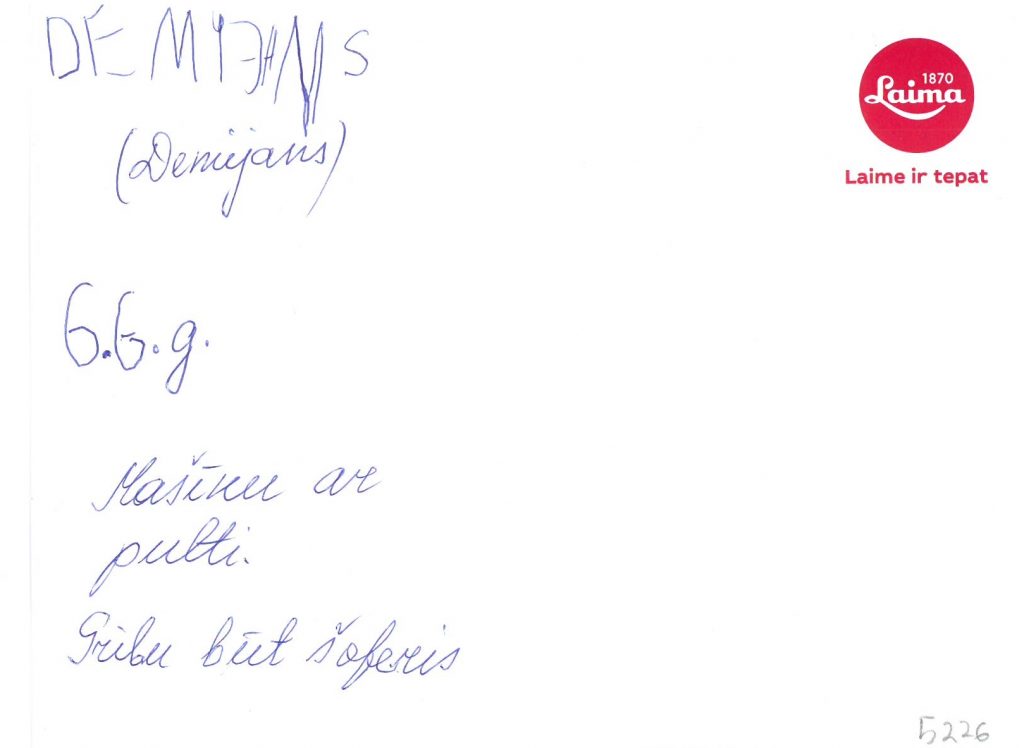 DEMIJANS
(Demijans)
1870
Laima
Laime ir tepat
6.6.g.
Mašīnu ar
pulti.
Gribu būt šoferis
5226